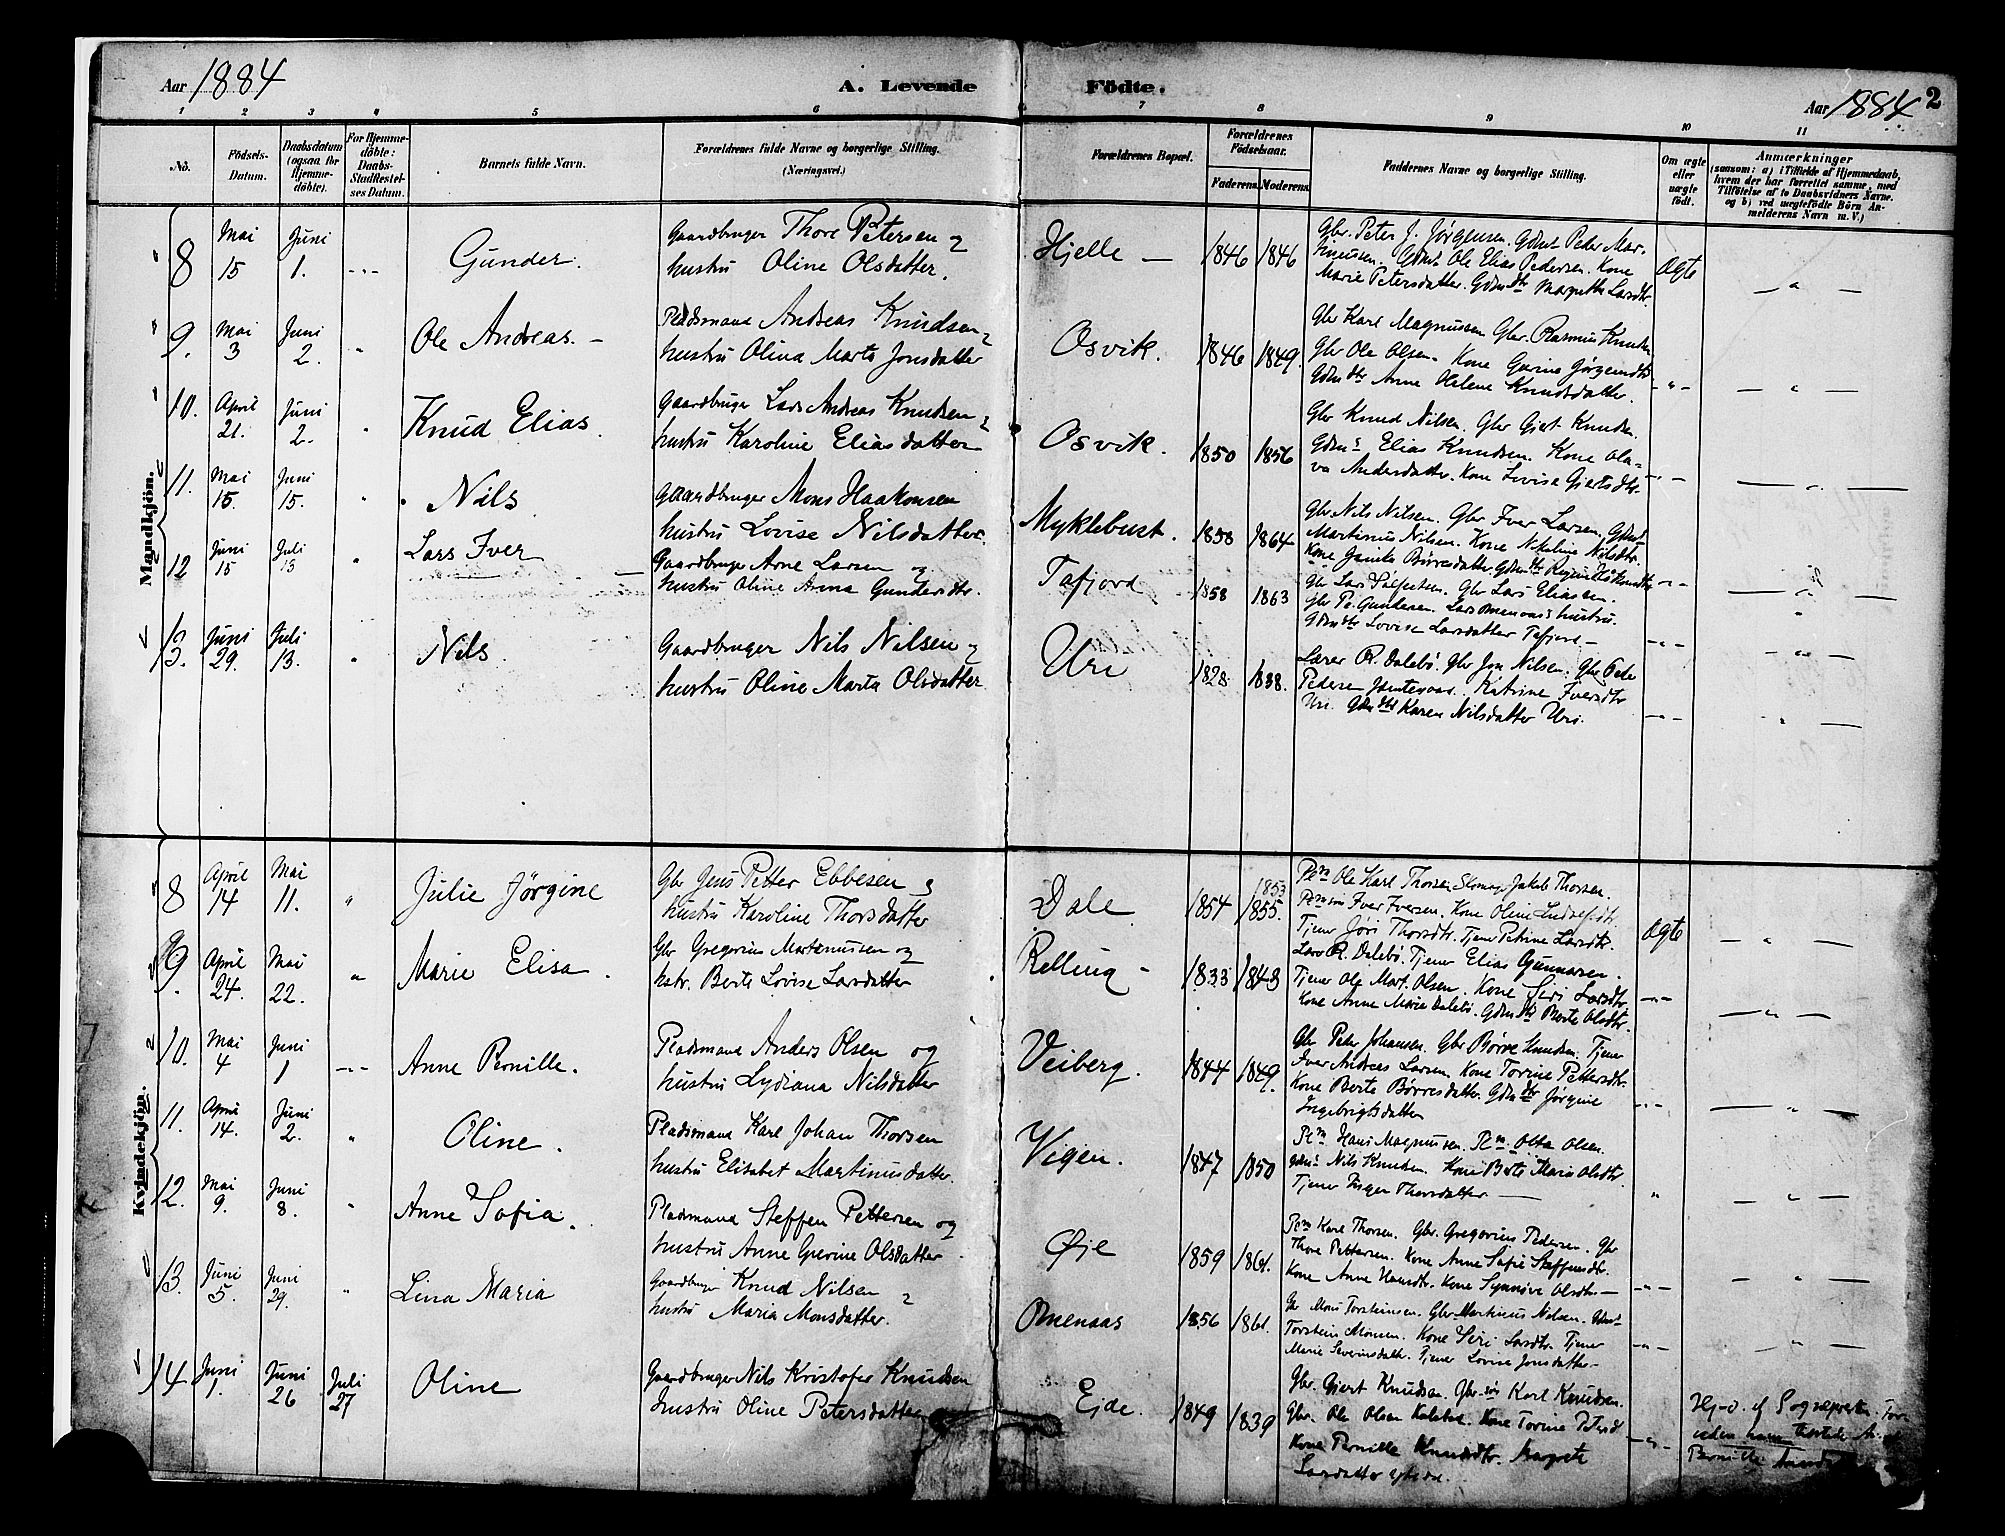 Aar 1884
A. Levende Födte.
Aar 1884 2
1 2 3 4 5 6 7 8 9 10 11
No.
Födsels-Datum.
Daabsdatum (ogsaa for Hjemme-döbte).
For Hjemme-döbte: Daabs-Stadfæstel-ses Datum.
Barnets fulde Navn.
Forældrenes fulde Navne og borgerlige Stilling.
(Næringsvei.)
Forældrenes Bopæl.
Forældrenes Födselsaar.
Faderens. Moderens.
Faddernes Navne og borgerlige Stilling.
Om ægte eller uægte födt.
Anmærkninger
(saasom: a) i Tilfælde af Hjemmedaab,
hvem der har forrettet samme, med
Tilföielse af to Daabsvidners Navne.
og b) ved uægtefödte Börn An-
melderens Navn m. V.)
Mandkjön.
8 Mai 15 Juni 1. Gunder. Gaardbruger Thore Petersen og
hustru Oline Olsdatter. Hjelle 1846 1846 Gbr. Peter J. Jørgensen. Gdmt Peder Mar-
tinussen. Gdmt Ole Elias Pedersen. Kone
Marie Petersdatter. Gdm dtr Margrethe Larsdtr. Ægte
9. Mai 3 Juni 2. Ole Andreas. Pladsmand Andreas Knudsen
hustru Olina Marta Jonsdatter Osvik. 1846 1849. Gbr Karl Magnussen Gbr. Rasmus Knudsen
Gbr Ole Olsen. Kone Gurine Jørgensdtr
Gdm dtr Anne Helene Knudsdatter.
10. April 21. Juni 2. Knud Elias. Gaardbruger Lars Andreas Knudsen
hustru Karoline Eliasdatter Osvik. 1850 1856 Gbr Knud Nilsen. Gbr Giert Knudsen.
Gdms Elias Knudsen. Kone Ola-
va Andersdatter. Kone Lovise Giertsdtr.
11. Mai 15. Juni 15. Nils Gaardbruger Mons Haakonsen
hustru Lovise Nilsdatter. Myklebust. 1858 1864 Gbr Nils Nilsen. Gbr Iver Larsen. Gdmt
Martinus Nilsen. Kone Nikoline Nilsdtr.
Kone Børresdatter Gdm dtr
12 Juni 15 Juli 13 Lars Iver Gaardbruger Arne Larsen og
hustru Oline Anna Gundersdtr. Tafjord 1858 1863 Gbr Lars Gbr Lars Eliassen.
Gbr Pe. Gundersen. Lars Omenaas's hustru.
Gdm dtr Lovise Larsdatter Tafjord
13. Juni 29. Juli 13. Nils Gaardbruger Nils Nilsen og
hustru Oline Marta Olsdatter Uri 1828 1838. Lærer R. Dalebø. Gbr Jon Nilsen. Gbr Peder
Pedersen Katrine Iversdtr
Uri. Gdm dtr Karen Nilsdatter Uri.
Kvindekjön.
8 April 14 Mai 11. Julie Jørgine Gbr Jens Petter Ebbesen og
hustru Karoline Thorsdatter Dale 1854 1853 1855. Plm Ole Karl Thorsen Jakob Thorsen.
Iver Iversen. Kone Oline
Tjener Jøri Thorsdtr. Tjener Petrine Larsdtr. Ægte
9. April 24. Mai 22. Marie Elisa. Gbr Gregorius Martinussen og
hstr. Berte Lovise Larsdatter Relling 1833 1843 R. Dalebø. Tjener Elias Gunnarsen.
Tjener Ole Mart. Olsen. Kone Siri Larsdtr
Kone Anne Marie Dalebø. Gdm dtr Berte Olsdtr.
10. Mai 4 Juni 1 Anne Pernille. Pladsmand Anders Olsen og
hustru Lydiana Nilsdatter Veiberg. 1844 1849. Gbr Peter Johansen. Gbr Børre Knudsen. Tjener
Iver Andreas Larsen. Kone Torine Pettersdtr.
Kone Berte Børresdatter. Gdm dtr Jørgine
Ingebrigtsdatter
11. April 14. Juni 2. Oline. Pladsmand Karl Johan Thorsen
hustru Elisabet Martinusdatter. Vigen. 1847 1850 Plm Hans Magnussen. Plm. Olsen.
Gdms Nils Knudsen. Kone Berte Maria Olsdtr.
Tjener Inger Thorsdatter
12. Mai 9. Juni 8. Anne Sofia. Pladsmand Steffen Pettersen og
hustru Anne Grerine Olsdatter Øje 1859 1861. Plm Karl Thorsen. Gbr. Gregorius Pedersen. Gbr
Thore Pettersen. Kone Anne Sofie Steffensdtr.
Kone Anne Kone Synnøve Olsdtr
13. Juni 5. Juni 29. Lina Maria Gaardbruger Knud Nilsen
hustru Maria Monsdatter. Omenaas 1856 1861. Gbr Mons Torsteinsen. Gbr Martinus Nilsen.
Torstein Monsen. Kone Siri Larsdtr. Tjener
Marie Severinsdatter. Tjener Lovise Jonsdatter
14 Juni 1. Juni 26 Juli 27 Oline Gaardbruger Nils Kristofer Knudsen
hustru Oline Petersdatter Eide. 1849 1839 Gbr. Giert Knudsen. Gbr. søn Karl Knudsen.
Gbr. Ole Olsen Kone Torine Petersd
Kone Pernille Knudsdtr. Margrete
Larsdatter
Hj-d. af Sognepresten
Pernille